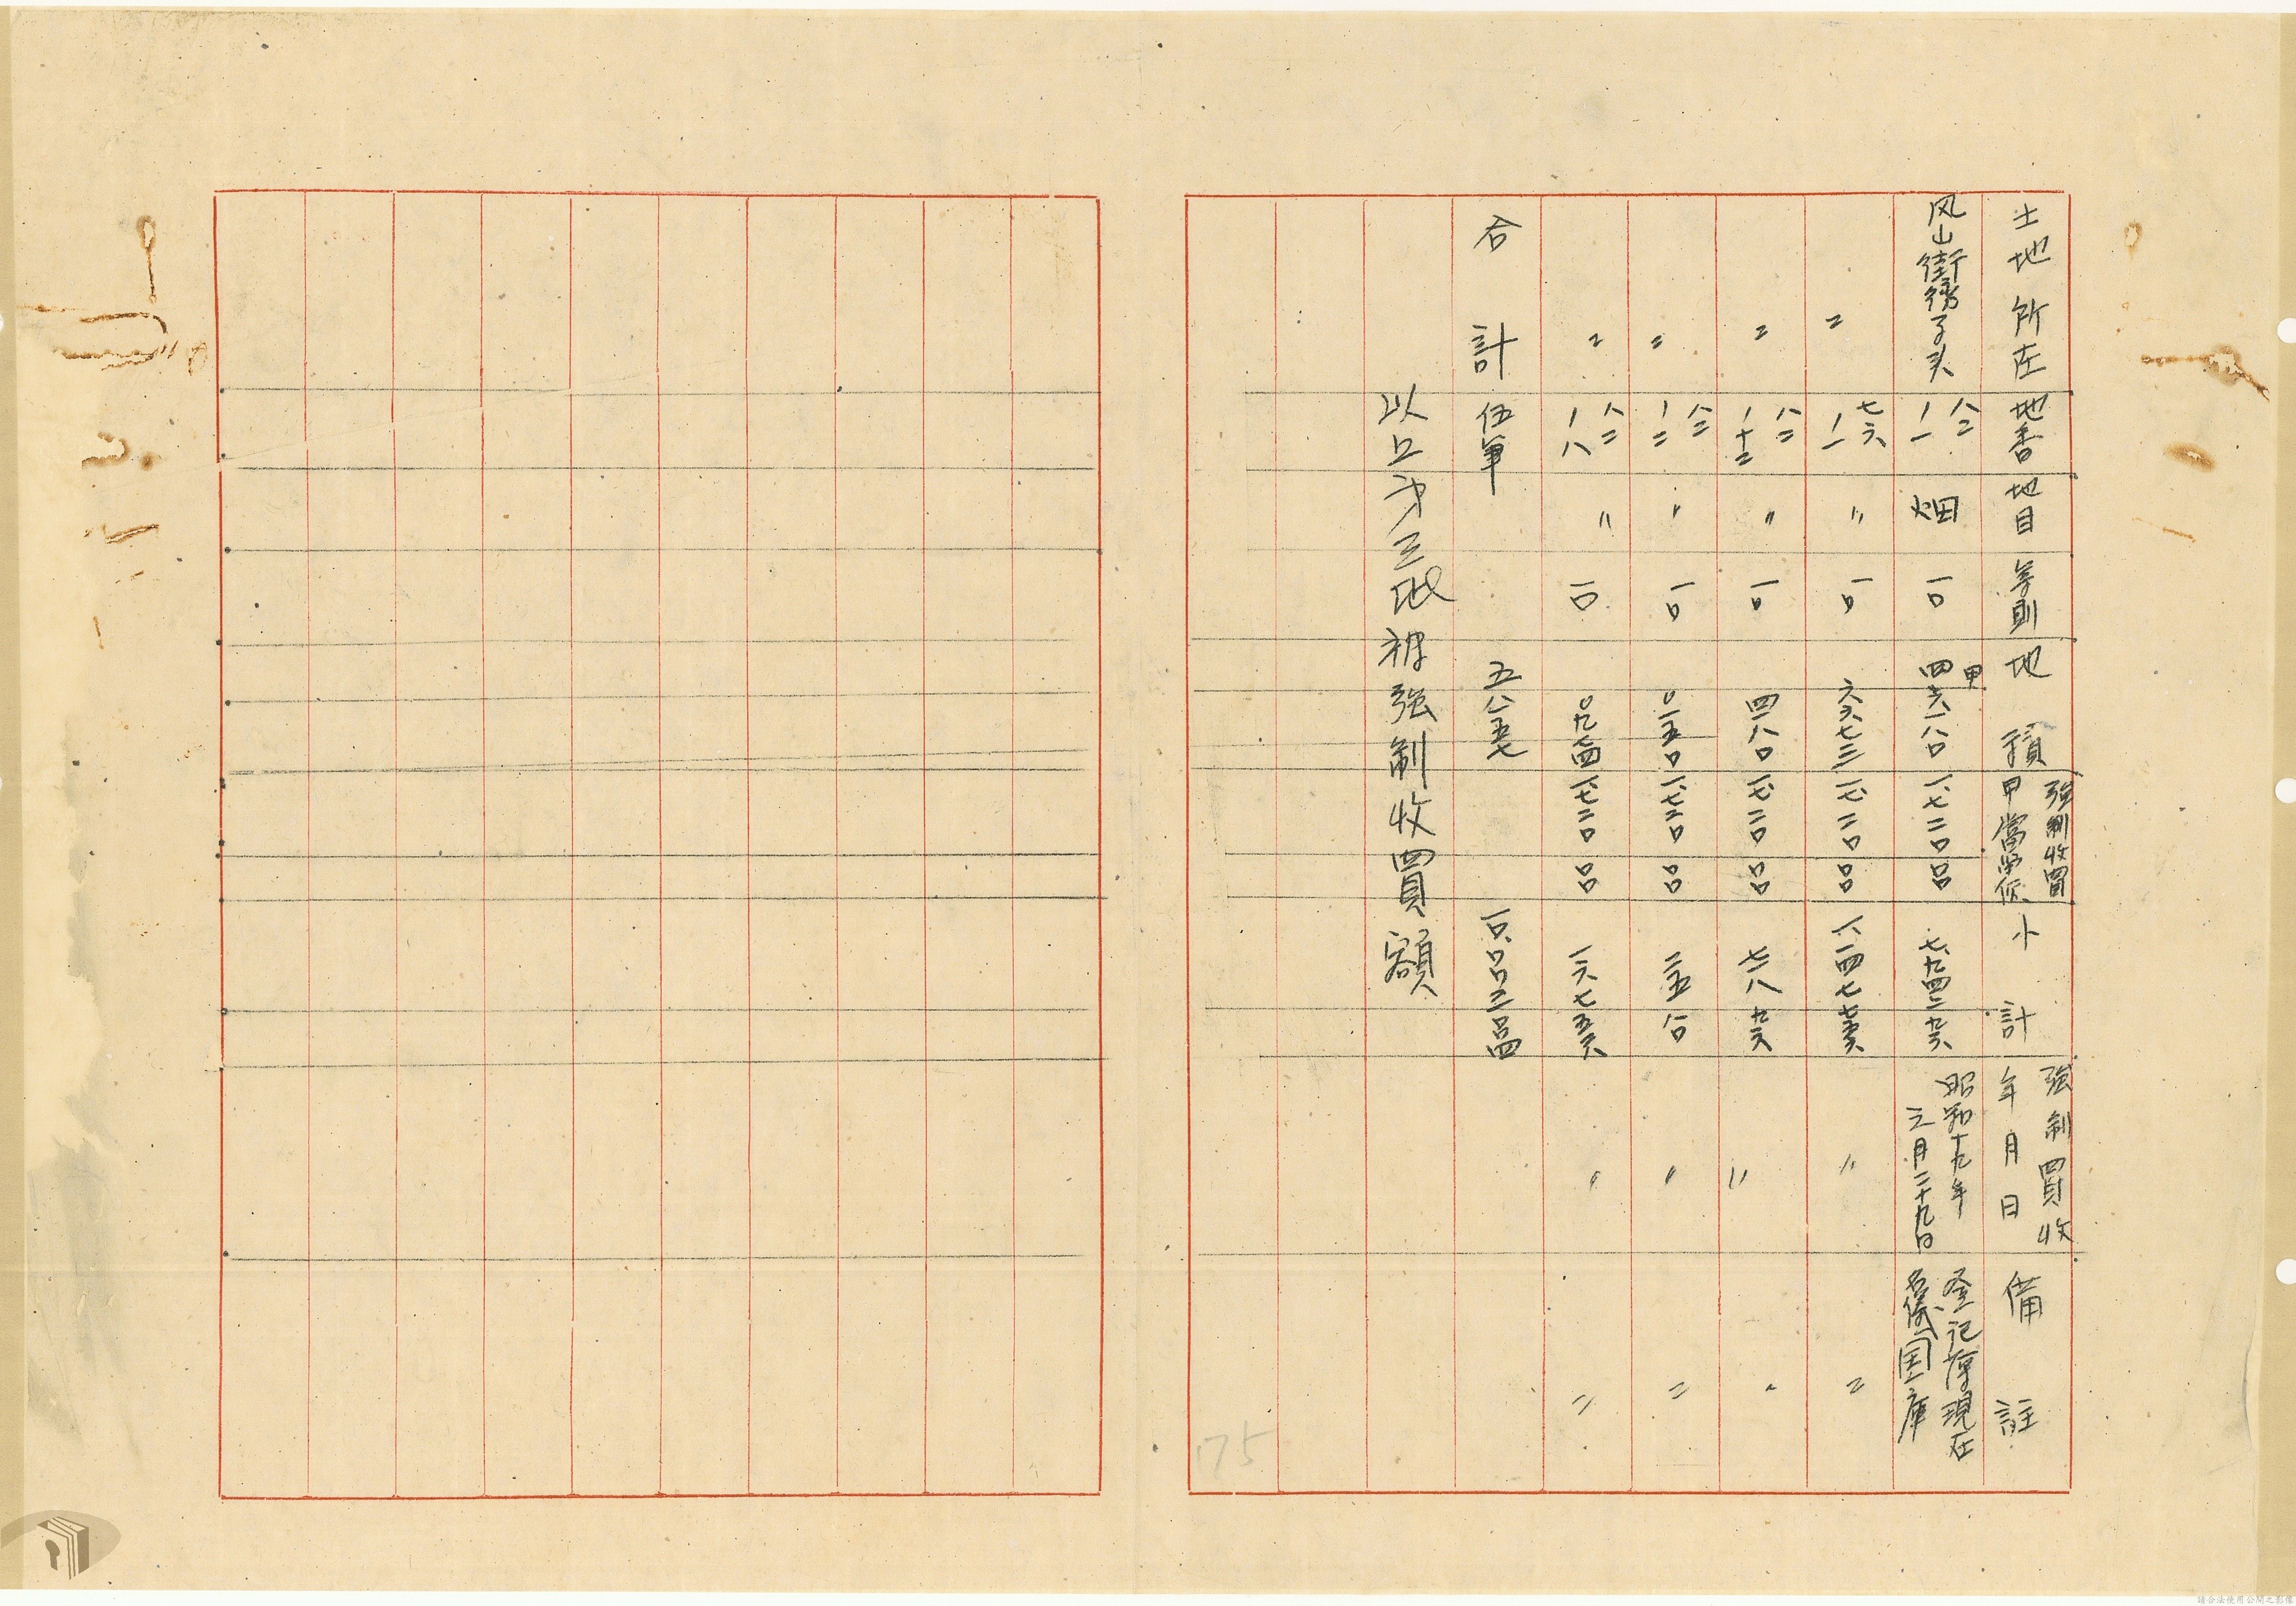 土地所在 地番 地目 等則 地積 強制收買甲當單價 小計 強制買收年月日 備註
风山街 子头 八二 ノ一 畑 一〇 四六一八〇甲 一、七二〇〇〇 七、九四二九六 昭和十九年三月二十九日 登記簿現在名儀国庫
〃 七六 ノ一 〃 一〇 六六七三 一、七二〇〇〇 一、一四七七五六 〃 〃
〃 八二 ノ十二 〃 一〇 四一八〇 一、七二〇〇〇 七一八九六 〃 〃
〃 八二 ノ二 〃 一〇 〇一五〇 一、七二〇〇〇 二五八〇 〃 〃
〃 八二 ノ八 〃 一〇 〇九七四 一、七二〇〇〇 一六七五六 〃 〃
合計 伍筆 五八一五七 一〇、〇〇三〇四
以上才三次被強制收買額
175
請合法使用公開之影像